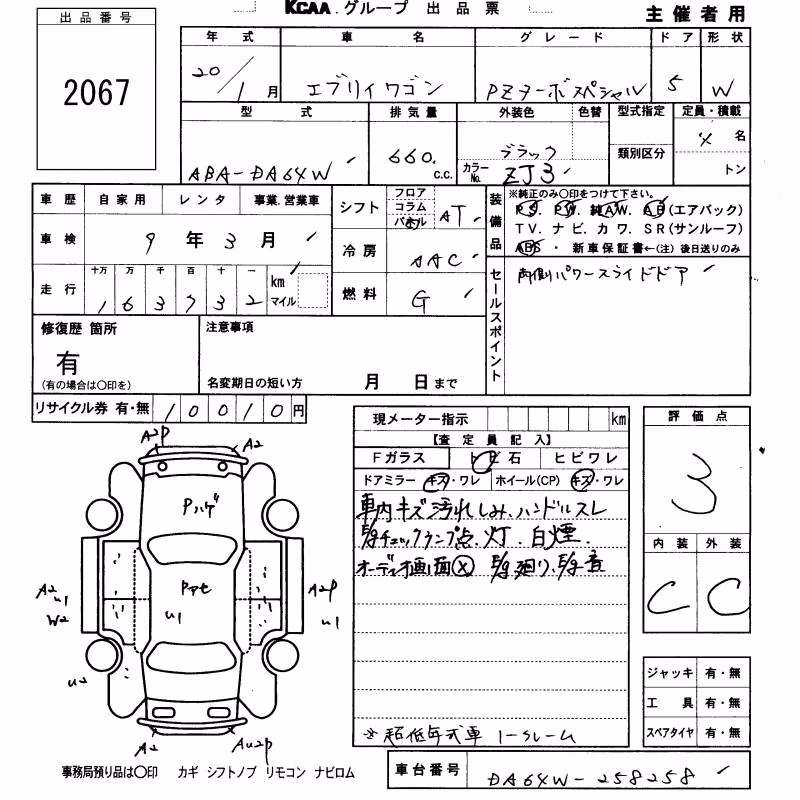 KCAA.グループ 出品票
主催者用
出品番号
2067
年式 車名 グレード ドア 形状
20/1月 エブリイワゴン PZターボスペシャル 5 W
型式 排気量 外装色 色替 型式指定 定員・積載
ABA-DA64W 660 c.c. ブラック 類別区分 名
カラーNo. ZJ3 トン
車歴 自家用 レンタ 事業.営業車
車検 9年3月
走行 十万 万 千 百 十 一 km マイル
163732
シフト フロア コラム パネル AT
冷房 AAC
燃料 G
装備品 ※純正のみ〇印をつけて下さい。
PS. PW. 純AW. AB(エアバック)
TV. ナビ. カワ. SR(サンルーフ)
ABS・ 新車保証書←(注) 後日送りのみ
セールスポイント 両側パワースライドドア
修復歴 箇所 注意事項
有
(有の場合は〇印を) 名変期日の短い方 月 日まで
リサイクル券 有・無 10010円
現メーター指示 km
【査定員記入】
Fガラス トビ石 ヒビワレ
ドアミラー キズ・ワレ ホイール(CP) キズ・ワレ
車内キズ汚れしみ、ハンドルスレ
E/gチェックランプ点.灯.白煙.
オーディオ画面× E/g廻り、E/g音
※超低年式車 1クレーム
評価点
3
内装 外装
C C
ジャッキ 有・無
工具 有・無
スペアタイヤ 有・無
A2P A2
Pハゲ
Pアセ
U1
A2 U1
W2
A2P
U1
U2
A2 AU2P
事務局預り品は〇印 カギ シフトノブ リモコン ナビロム
車台番号 DA64W-258258